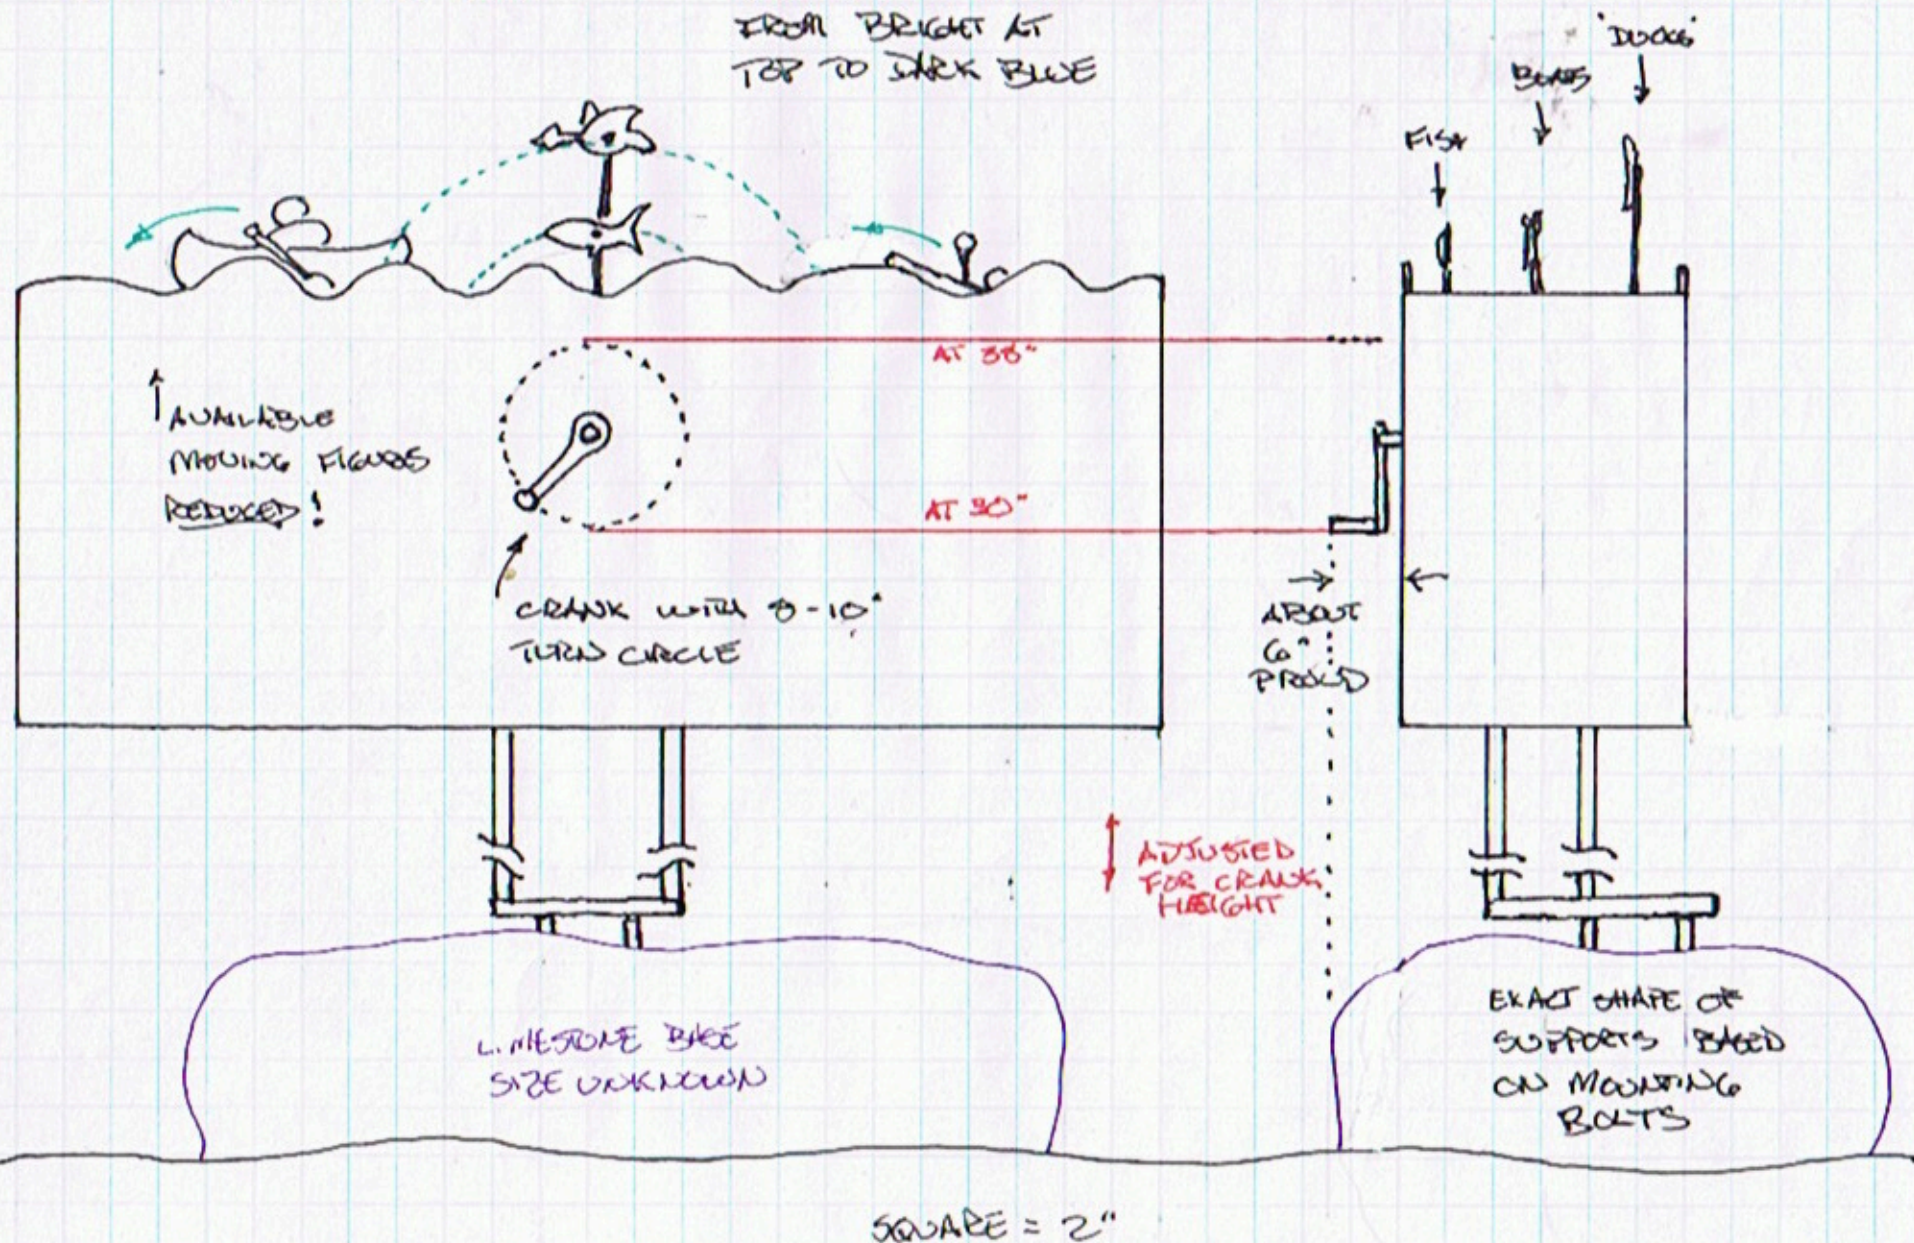 FROM BRIGHT AT
TOP TO DARK BLUE
"DUCKS"
BOATS
FISH
AT 38"
AVAILABLE
MOVING FIGURES
REDUCED!
AT 30"
CRANK WITH 8-10"
TURN CIRCLE
ABOUT
6"
PROUD
ADJUSTED
FOR CRANK
HEIGHT
LIMESTONE BASE
SIZE UNKNOWN
EXACT SHAPE OF
SUPPORTS BASED
ON MOUNTING
BOLTS
SQUARE = 2"